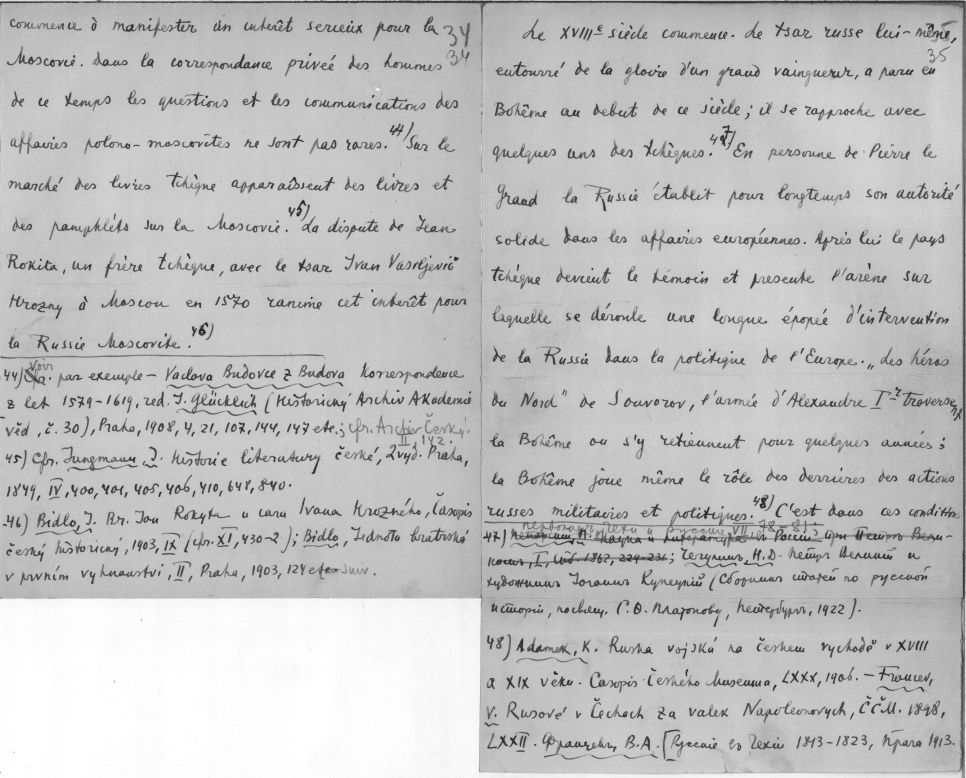 34
34
commence à manifester un interêt serieux pour la
Moscovie. Dans la correspondance priveé des hommes
de ce temps les questions et les communications des
affaires polono-moscovites ne sont pas rares.44) Sur le
marché des livres tchèque apparaîssent des livres et
des pamphléts sur la Moscovie.45) La dispute de Jean
Rokita, un frère tchèque, avec le tsar Ivan Vasiljevič
Hrozny à Moscou en 1570 ranime cet interêt pour
la Russie Moscovite.46)
44) Voir par exemple – Vaclava Budovce z Budova Korrespondence
z let 1579-1619, red. J. Glücklich (Historický Archiv Akademie
věd, č. 30), Praha, 1908, 4, 21, 107, 144, 147 etc.; cfr. Archiv Český.
II, 142.
45) Cfr. Jungmann, J. Historie literatury české, 2 vyd. Praha,
1849, IV, 400, 401, 405, 406, 410, 648, 840.
46) Bidlo, J. Br. Jan Rokyta u cara Ivana Hrozného, Časopis
český historický, 1903, IX (cfr. XI, 430-2); Bidlo, Jednota bratrská
v prvním vyhnanstvi, II, Praha, 1903, 124 etc suiv.
35
35
Le XVIIIe siècle commence. Le tsar russe lui-même,
entourré de la gloire d'un grand vainqueur, a paru en
Bohême au debut de ce siècle; il se rapproche avec
quelques uns des tchèques.47) En personne de Pierre le
Grand la Russie établit pour longtemps son autorité
solide dans les affaires européennes. Après lui le pays
tchèque devient le témoin et presente l'arène sur
laquelle se déroule une longue épopée d'intervention
de la Russie dans la politique de l'Europe. „Des héros
du Nord" de Souvorov, l'armée d'Alexandre I-r traversent
la Bohême ou s'y retiennent pour quelques années;
la Bohême joue même le rôle des derrières des actions
russes militavies et politiques.48) C'est dans ces conditions
VII, 78-81;
47) Пекарский П. Наука и литература в России при Петре Вели-
ком, I, Спб. 1862, 229-231; Чечулин, Н.Д. Петръ Великий и
художникъ Іоганнъ Купецкій (Сборникъ статей по русской
исторіи, посвящ. С.Ѳ. Платонову, Петербургъ, 1922).
48) Adamek, K. Ruska vojska na českem vychodě v XVIII
a XIX věku. Casopis Českého Museuma, LXXX, 1906. – Francev,
V. Rusové v Čechach za valek Napoleonovych, ČČM. 1898,
LXXII. Францевъ В.А. Русскіе въ Чехіи 1813-1823, Прага 1913.